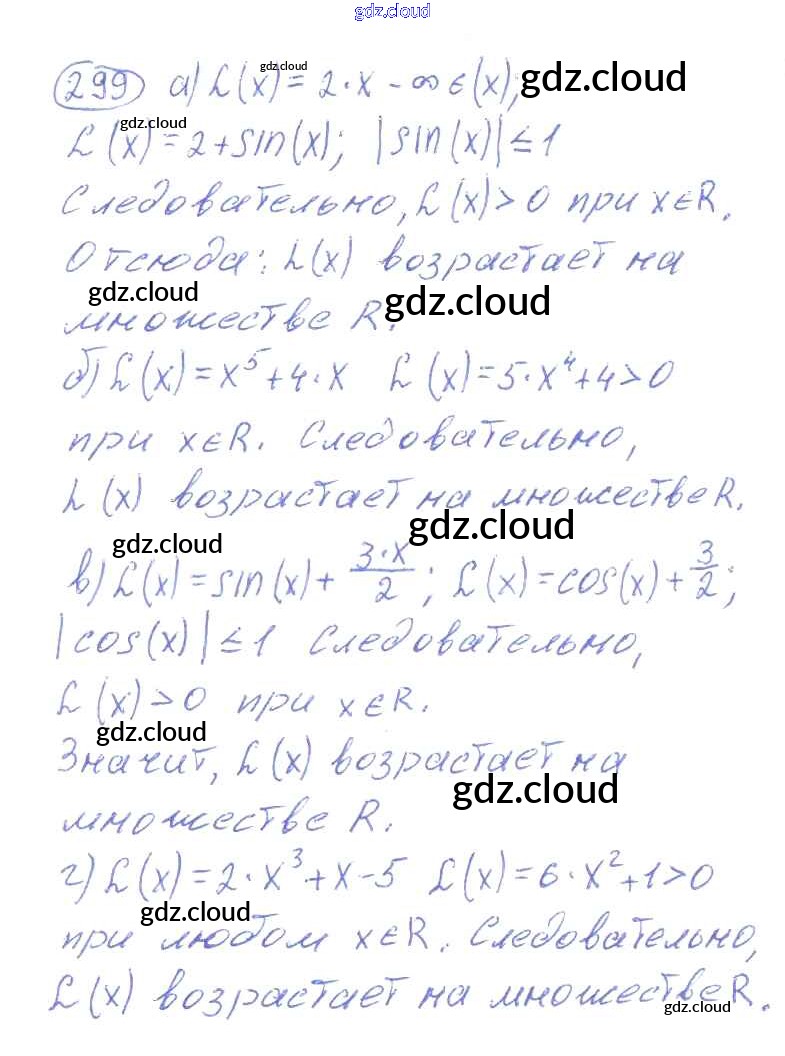 gdz.cloud
299 а) £(x) = 2·x - ∞ є(x); gdz.cloud
gdz.cloud
£(x) = 2 + sin(x); |sin(x)| ≤ 1
gdz.cloud
Следовательно, £(x) > 0 при x∈R.
Отсюда: £(x) возрастает на
gdz.cloud gdz.cloud
множестве R.
б) £(x) = x⁵ + 4·x £(x) = 5·x⁴ + 4 > 0
при x∈R. Следовательно,
£(x) возрастает на множестве R.
gdz.cloud gdz.cloud
в) £(x) = sin(x) + 3·x/2; £(x) = cos(x) + 3/2;
|cos(x)| ≤ 1 Следовательно,
£(x) > 0 при x∈R.
gdz.cloud
Значит, £(x) возрастает на
gdz.cloud
множестве R.
г) £(x) = 2·x³ + x - 5 £(x) = 6·x² + 1 > 0
gdz.cloud
при любом x∈R. Следовательно,
£(x) возрастает на множестве R.
gdz.cloud